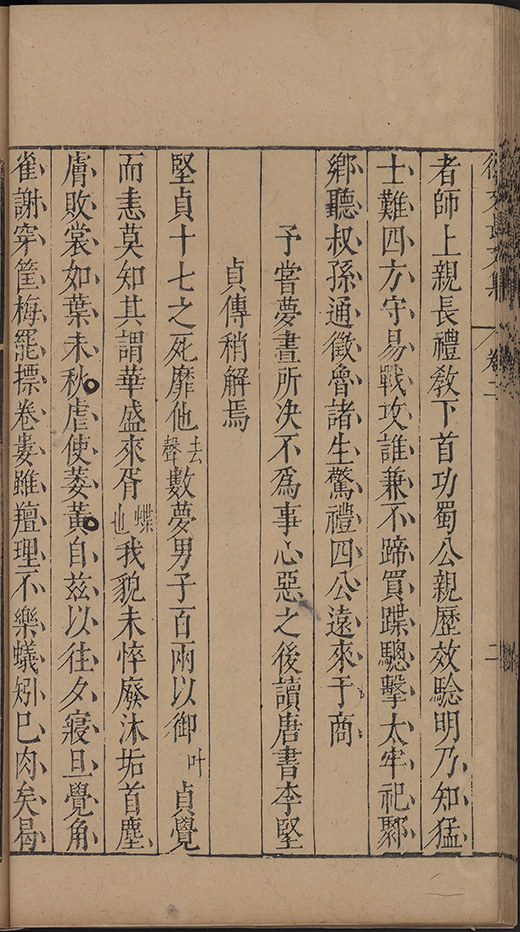 徐文長文集 卷二 二
者師上親長禮教下首功蜀公親歷效驗明乃知猛
士難四方守易戰攻誰兼不蹄買蹀驄擊太牢祀鄹
鄉聽叔孫通徵魯諸生驚禮四公遠來于商
予嘗夢晝所决不爲事心惡之後讀唐書李堅
貞傳稍解焉
堅貞十七之死靡他去聲數夢男子百兩以御叶貞覺
而恚莫知其謂華盛來胥蝶也我貌未悴廢沐垢首塵
膚敗裳如葉未秋虐使萎黃自茲以往夕寢旦覺角
雀謝穿筐梅罷摽卷婁雖羶理不樂蟻矧巳肉矣曷